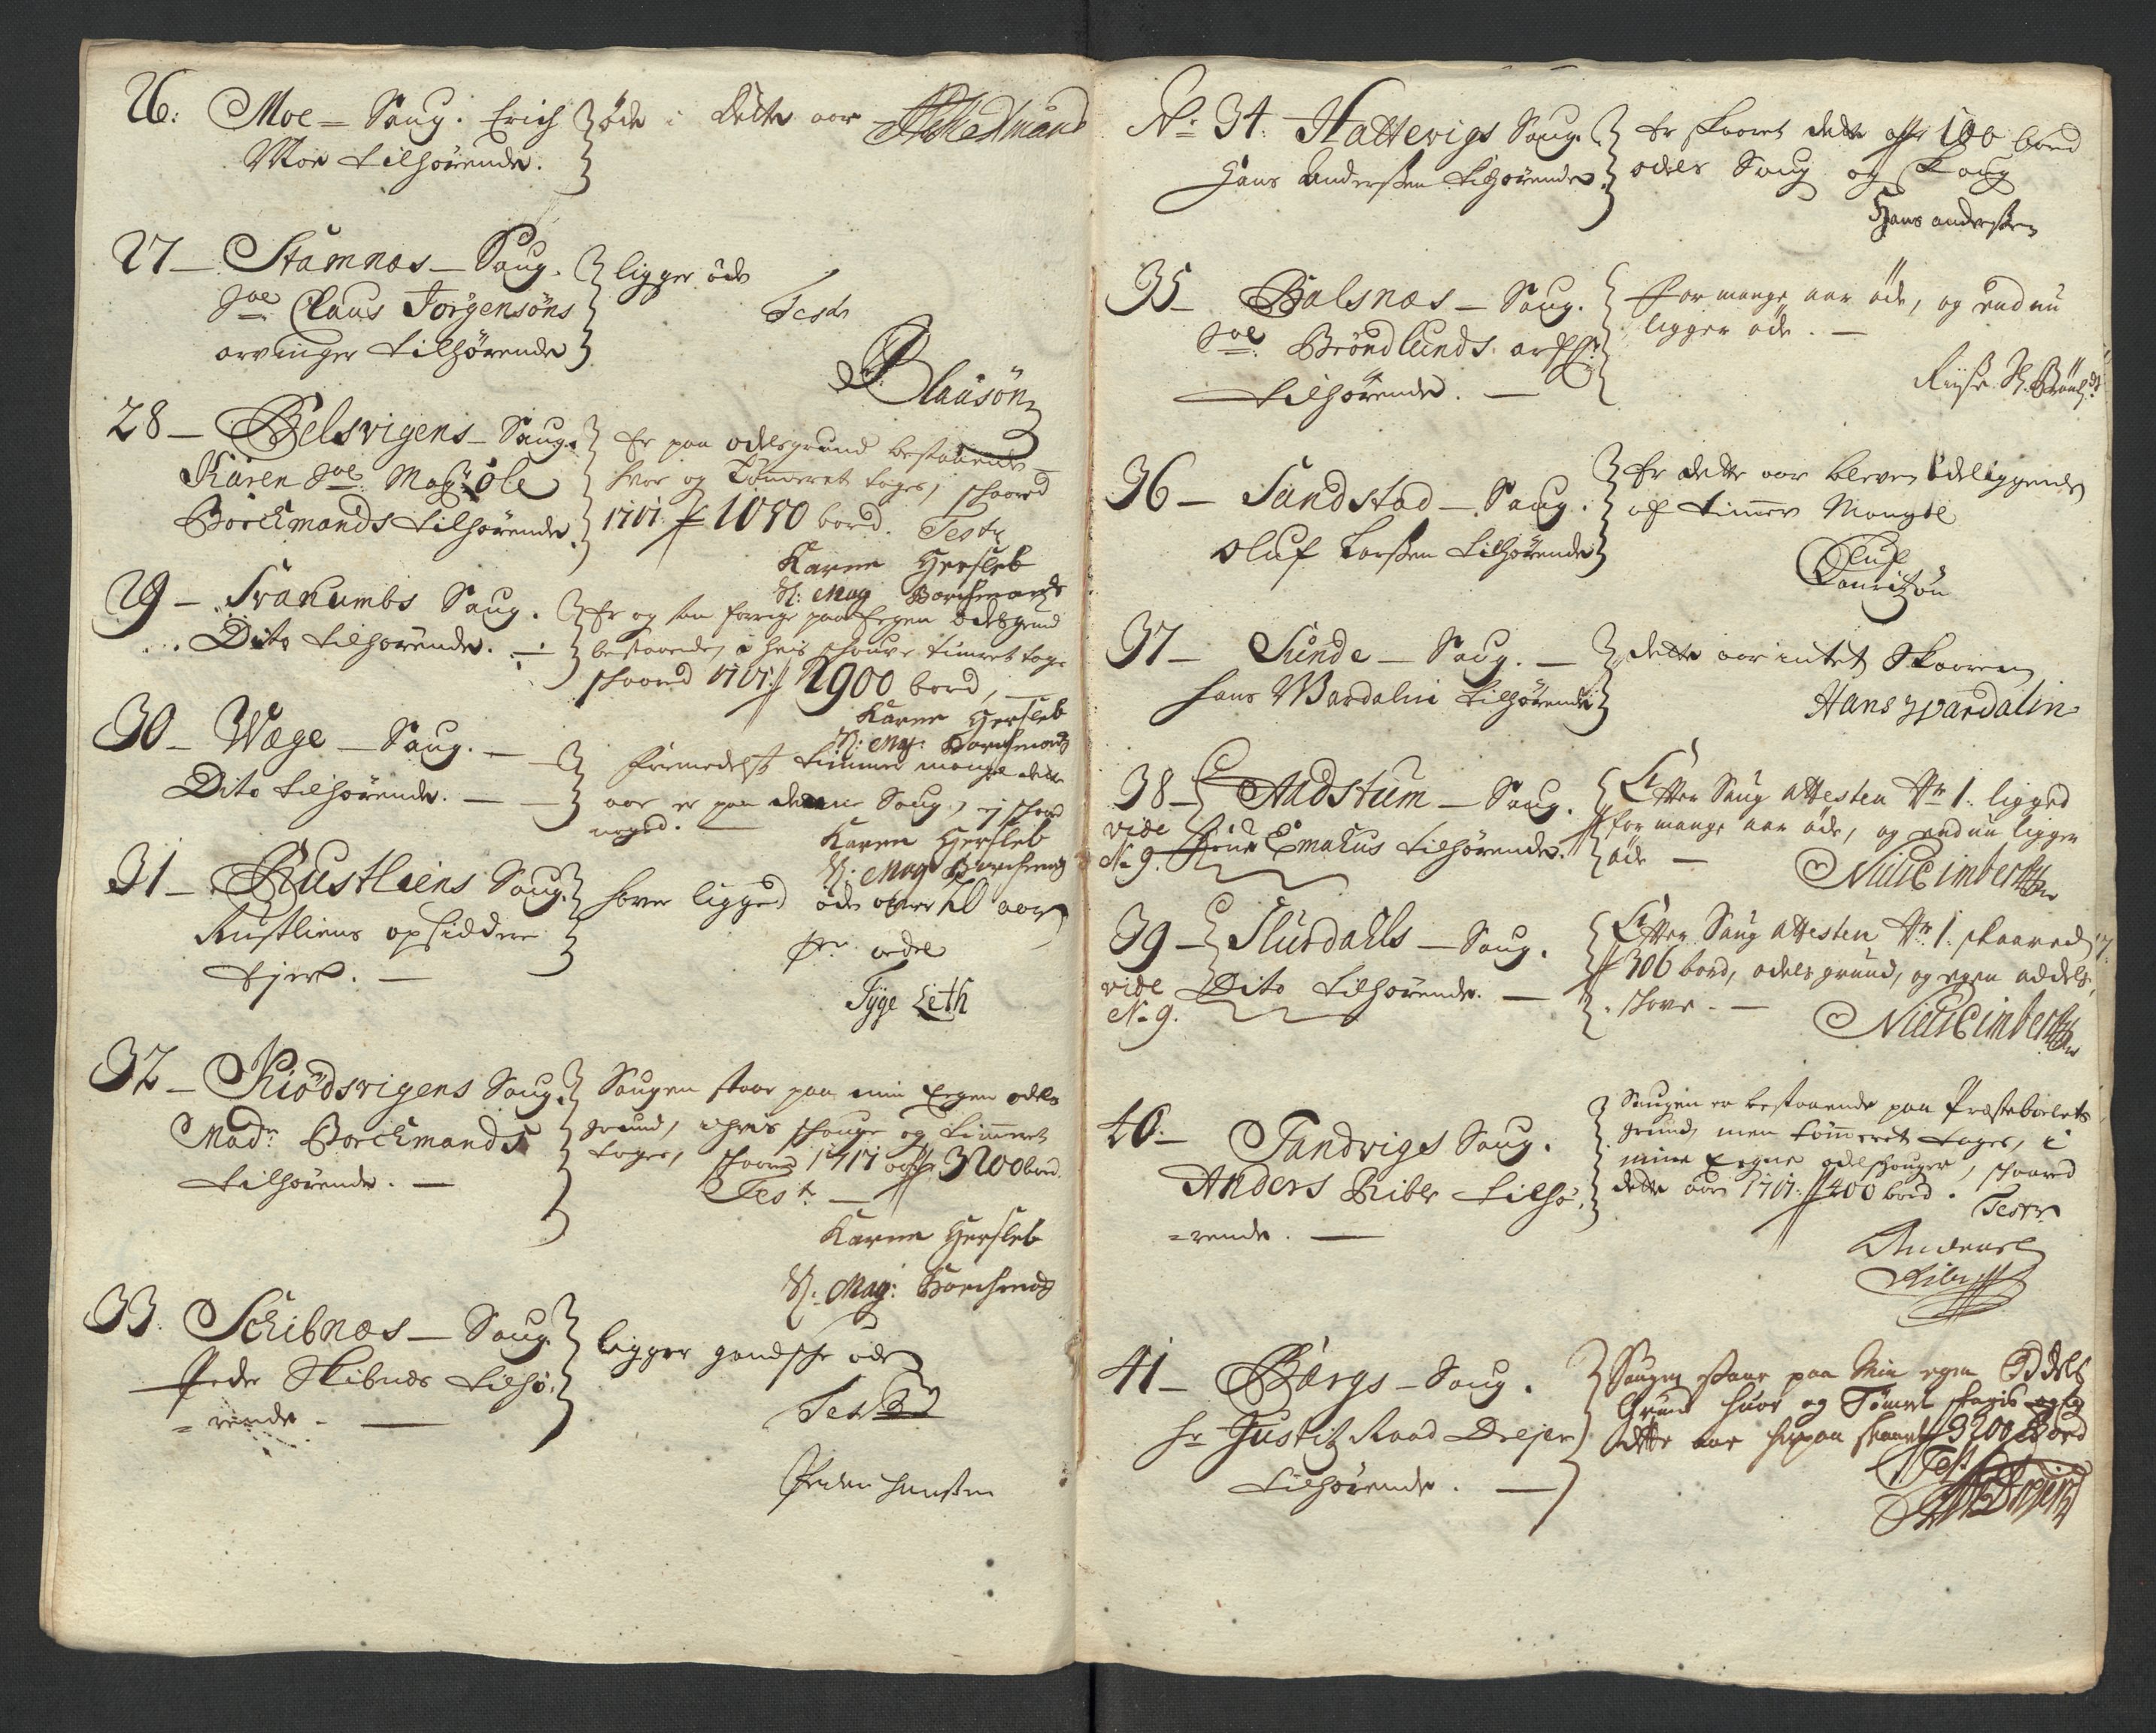 26: Moe – Saug. Erich
Moe tilhörende.
öde i dette aar
27 – Stamnæs – Saug.
Sal: Claus Jörgensöns
arvinger tilhörende
ligger öde
Teste
Clausön
28 – Belsvigens – Saug.
Karen Sal: Mag: Ole
Borckmands tilhörende.
Er paa odelsgrund bestaaende
hvor og Tömmeret tages, schaared
1701 – 1050 bord. Teste
Karen Hersleb
Sl: Mag: Borchmands
29 – Svanumbs Saug.
Dito tilhörende.
Er og som forrige paa Eegen odelsgrund
bestaaende, i hvis schouve timret tages
schaared 1701: 2900 bord,
Karen Hersleb
Sl: Mag: Borchmands
30 – Wæge – Saug. –
Dito tilhörende. –
Formedelst timmer mangel dette
aar er paa denne Saug, ej schaared
noged. –
Karen Hersleb
Sl: Mag: Borchmands
31 – Rustliens Saug.
Rustliens opsiddere
Ejer. –
hver ligged öde over 50 aar
odel
Tÿge Leth
32 – Kiödsvigens Saug.
Mad: Borckmands
tilhörende. –
Saugen staar paa min Eegen odels
grund, i hvis schouge og timmeret
tages, schaared 1701 3200 bord.
Teste –
Karen Hersleb
Sl: Mag: Borchmands
33. Schibnæs – Saug
Peder Skibnæs tilhö-
= rende. –
ligger gandsche öde
Teste
Peder Hansen
No 34: Hattevigs Saug.
Hans Anderssen tilhörende.
Er skaaret dette aar 100 bord
odels Saug og skoug
Hans anderssen
35 – Balsnæs – Saug.
Sal: Bröndlunds
tilhörende. –
For mange aar öde, og end nu
ligger öde. –
36 – Sundstad – Saug.
Oluf Larssen tilhörende
Er dette aar bleven ödeliggende
af timmer Mangel
Oluf
Lauritzön
37 – Sunde – Saug. –
Hans Wardalin tilhörende
dette aar intet Skaaren
Hans Wardalin
38 – Aadstum – Saug.
vide Emahus tilhörende.
No 9.
Efter Saug attesten No 1. ligged
for mange aar öde, og end nu ligger
öde –
39 – Slurdahls – Saug.
vide Dito tilhörende. –
No 9.
Efter Saug attesten No 1. skaared
306 bord, odels grund, og egen oddels
skove. –
40 – Tandvigs Saug.
Anders Riber tilhö-
= rende. –
Saugen er bestaaende paa Præstebolets
grund, men tömmeret tages, i
mine Eegne odelschouger, schaared
dette aar 1701: 400 bord.
Teste
Anders
Riber
41 – Bergs – Saug.
Hr Justitz Raad Drejer
tilhörende. –
Saugen staar paa Min egen Oddels
Grund huor og Tömret
dette aar herpaa skaaret 3200 Bord
Test